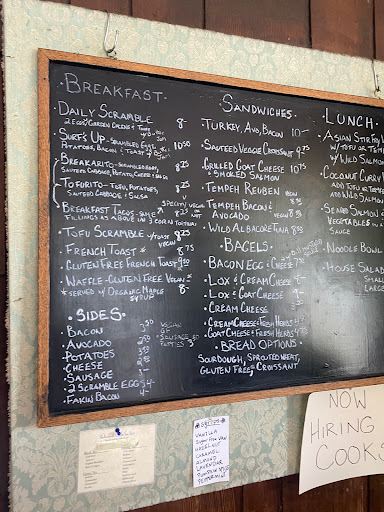 BREAKFAST
DAILY SCRAMBLE 8-
SURF'S UP - SCRAMBLED EGGS 10.50
POTATOES, BACON & TOAST
BREAKARITO - SCRAMBLED EGGS 8.25
SAUTEED CABBAGE, POTATO, CHEESE
TOFORITO - TOFU, POTATOES, 8.25
SAUTEED CABBAGE & SALSA
BREAKFAST TACOS - SAME 8.25
FILLINGS AS ABOVE IN 3 CORN TORTILLAS
SPECIFY VEGAN OR NOT
TOFU SCRAMBLE W/ TOAST VEGAN 8.75
FRENCH TOAST * 8.25
GLUTEN FREE FRENCH TOAST 9.50
WAFFLE - GLUTEN FREE VEGAN *
*SERVED W/ ORGANIC MAPLE SYRUP 8-
SIDES
BACON 3.50
AVOCADO 2.50
POTATOES 3.50
CHEESE
SAUSAGE
2 SCRAMBLE EGGS 4-
FAKIN BACON 4-
VEGAN
GF
SAUSAGE
PATTIES
SANDWICHES
TURKEY, AVO, BACON 10-
SAUTEED VEGGIE CROISSANT 9.75
GRILLED GOAT CHEESE 10.75
& SMOKED SALMON
TEMPEH REUBEN
TEMPEH BACON &
AVOCADO VEGAN 8.50
WILD ALBACORE TUNA 8.50
BAGELS
BACON EGG & CHEESE
LOX & CREAM CHEESE
LOX & GOAT CHEESE
CREAM CHEESE
CREAM CHEESE & FRESH HERBS 4-
GOAT CHEESE & FRESH HERBS 4.75
BREAD OPTIONS
SOURDOUGH, SPROUTED WHEAT,
GLUTEN FREE, CROISSANT
LUNCH
ASIAN STIR FRY
W/ TOFU OR TEMP
W/ WILD SALMON
COCONUT CURRY
ADD TOFU OR TEMP
ADD WILD SALMON
SEARED SALMON
VEGETABLES IN A
SAUCE
NOODLE BOWL
HOUSE SALAD
SMALL
LARGE
VANILLA
HAZELNUT
CARAMEL
ALMOND
LAVENDAR
PUMPKIN SPICE
PEPPERMINT
NOW
HIRING
COOKS